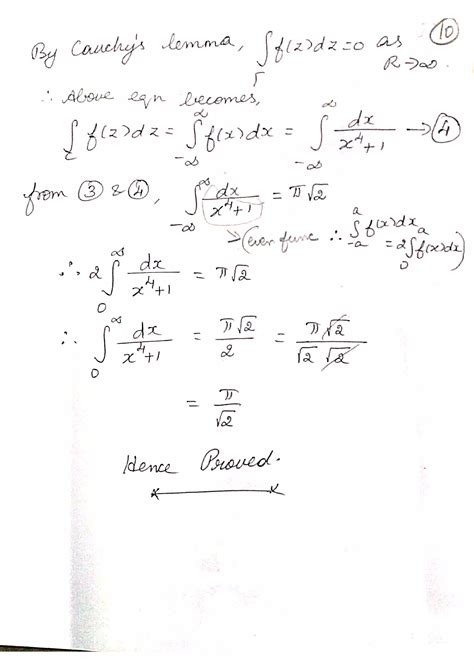 10
By Cauchy's lemma, ∫_Γ f(z)dz = 0 as R→∞.
∴ Above eqn becomes,
∫_C f(z)dz = ∫_{-∞}^{∞} f(x)dx = ∫_{-∞}^{∞} dx/(x⁴+1) → ④
from ③ & ④, ∫_{-∞}^{∞} dx/(x⁴+1) = π√2
→ (even func ∴ ∫_{-a}^{a} f(x)dx = 2∫_0^a f(x)dx)
∴ 2∫_0^∞ dx/(x⁴+1) = π√2
∴ ∫_0^∞ dx/(x⁴+1) = π√2/2 = π√2/(√2 √2)
= π/√2
Hence Proved.